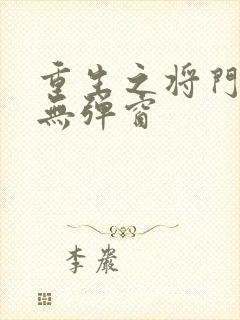 重生之将門
無彈窗
李巖